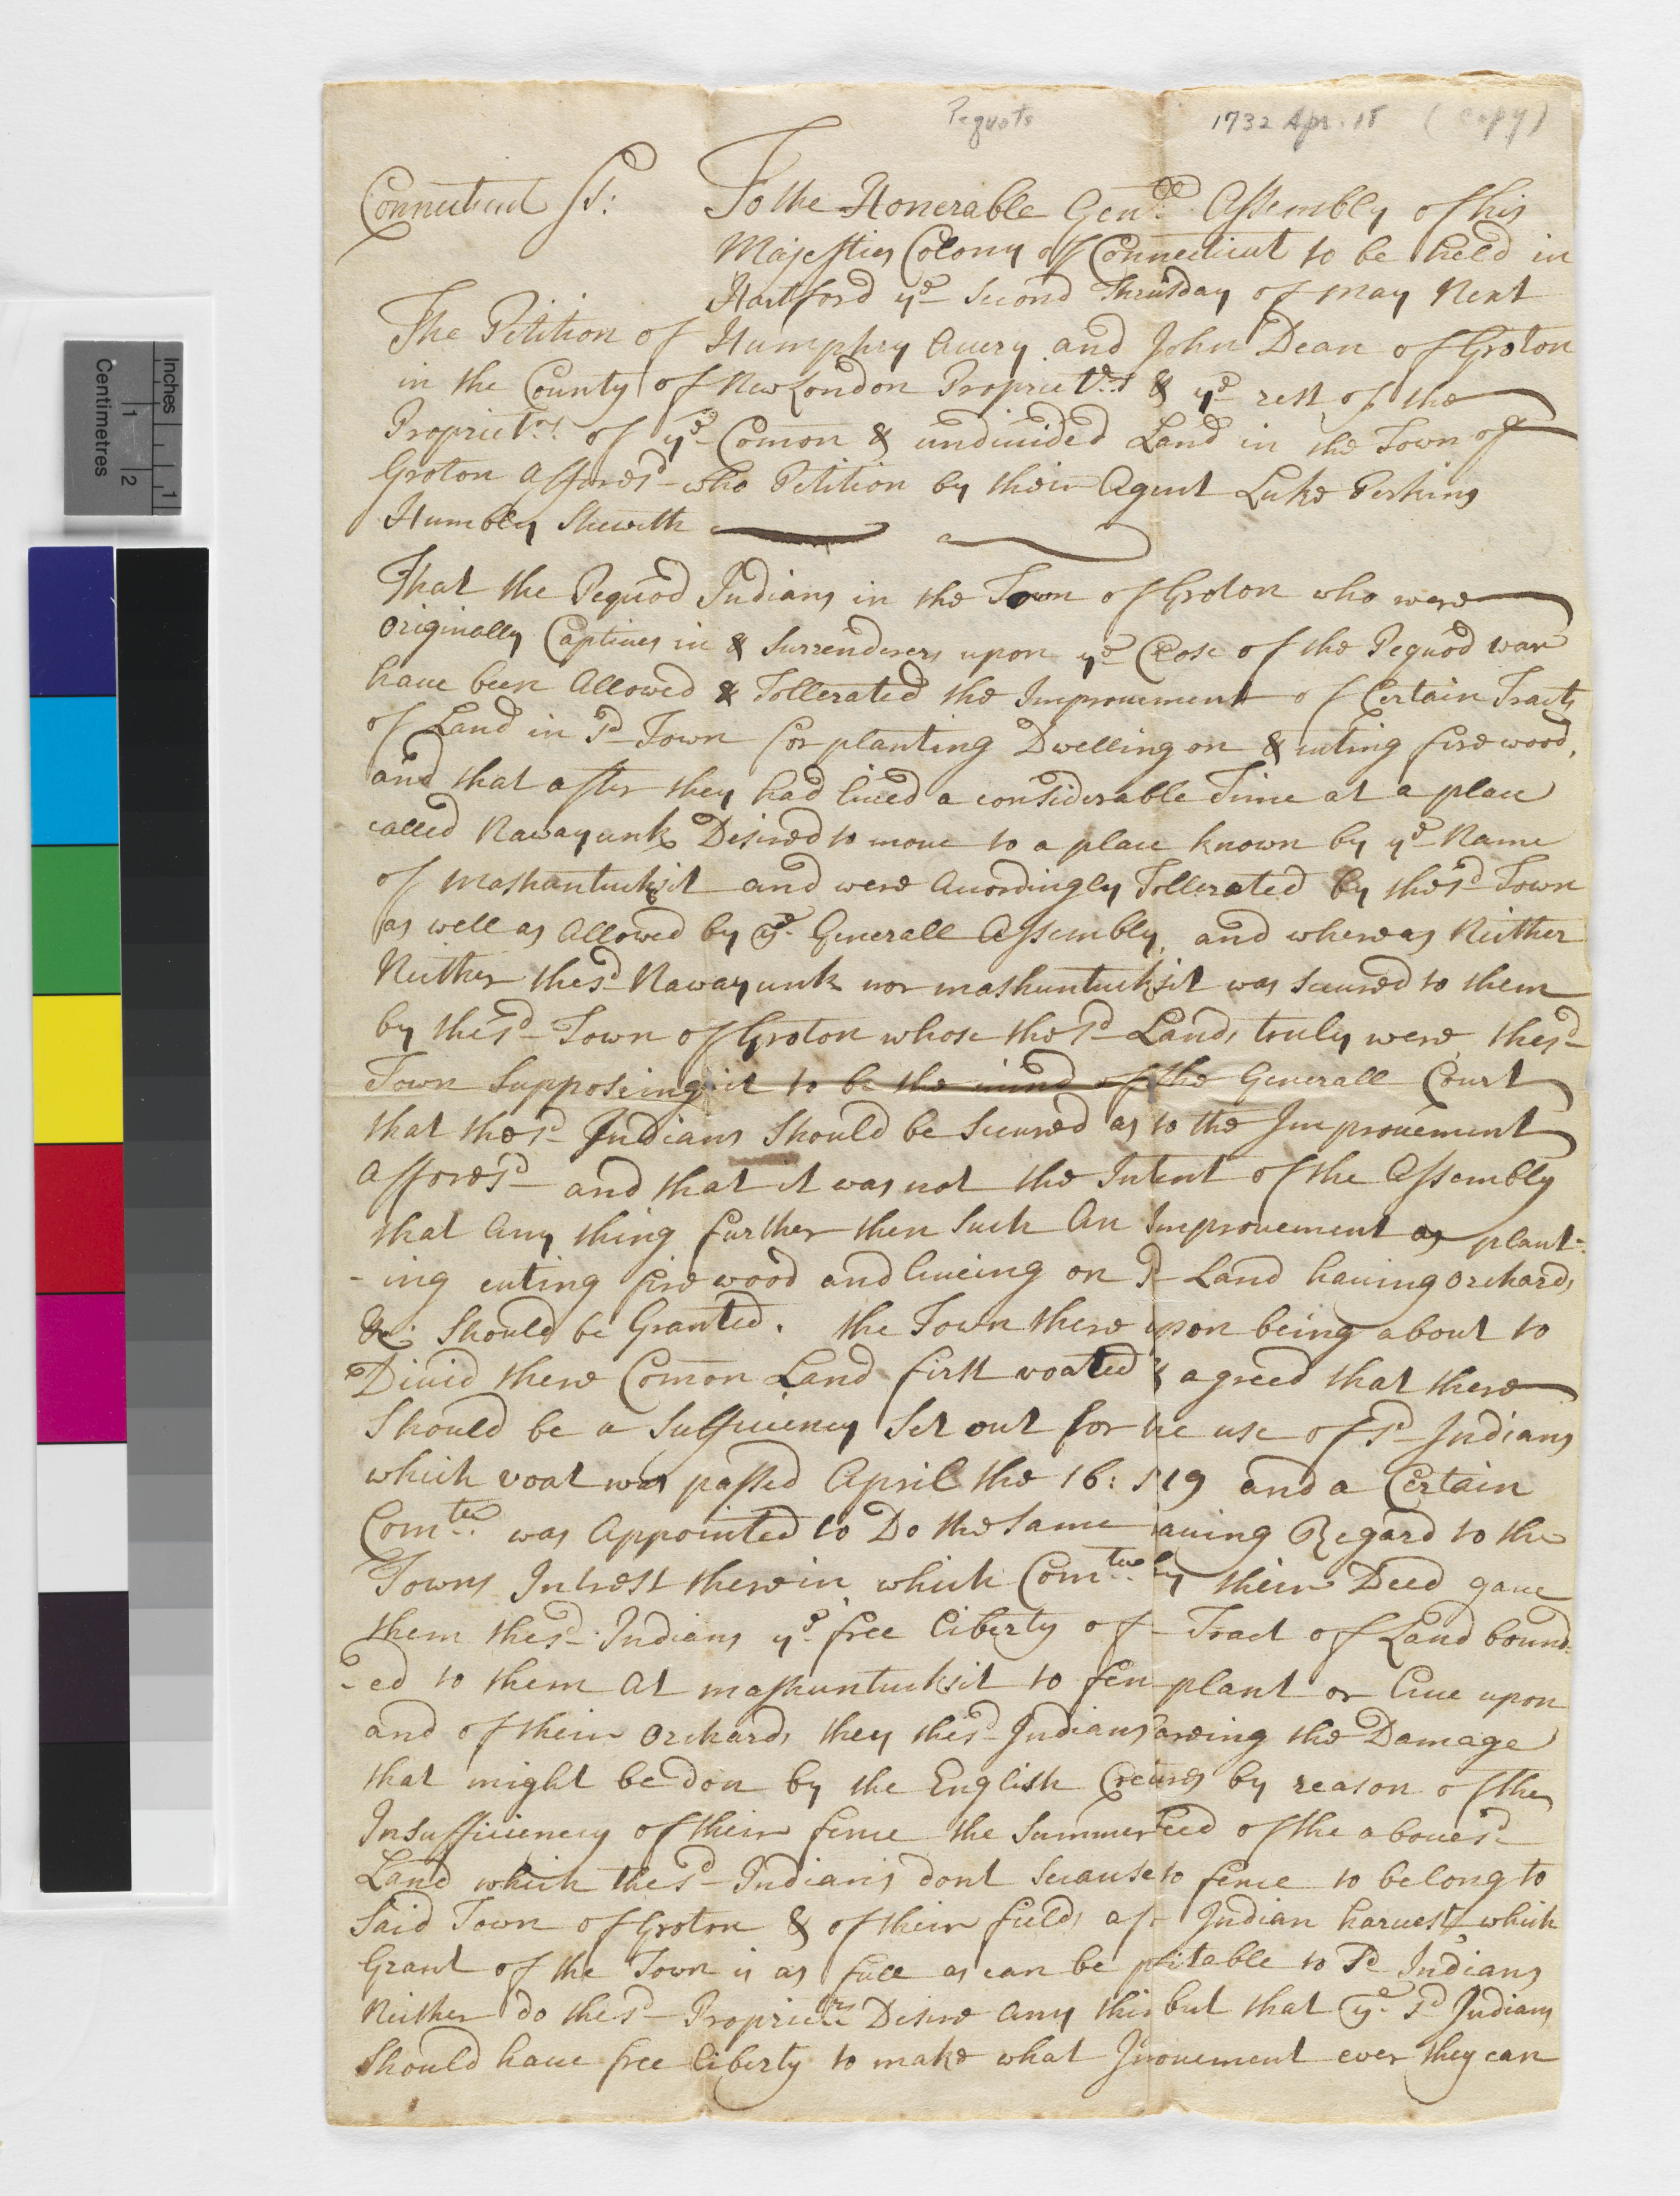 Pequots 1732 Apr. 18 (copy)
Connecticut Ss: To the Honerable Genll Assembly of his
Majesties Colony of Connecticut to be held in
Hartford ye Second Thrusday of May Next
The Petition of Humphry Avery and John Dean of Groton
in the County of New London Propriet.rs & ye rest of the
Propriet.rs of ye Comon & undivided Land in the Town of
Groton Aforesd who Petition by their Agent Luke Perkins
Humbly Sheweth
That the Pequod Indians in the Town of Groton who were
Originally Captives in & Surrenderers upon ye Close of the Pequod war
have been Allowed & Tollerated the Improvement of Certain Tracts
of Land in sd Town for planting Dwelling on & cuting fire wood,
and that after they had lived a considerable Time at a place
called Nawayunk Desired to move to a place known by ye Name
of Mashantucksit and were Acordingly Tollerated by the sd Town
as well as Allowed by ye Generall Assembly, and whereas Neither
Neither the sd Nawayunk nor mashuntucksit was Secured to them
by the sd Town of Groton whose the sd Lands truly were, the sd
Town Supposeing it to be the mind of the Generall Court
that the sd Indians Should be Secured as to the Improvement
Afforesd and that it was not the Intent of the Assembly
that Any thing further then Such An Improvement as plant-
-ing cuting fire wood and liveing on sd Land having orchards
&c: Should be Granted. the Town there upon being about to
Divid there Comon Land first voated & agreed that there
Should be a Sufficiency Set out for he use of sd Indians
which voat was passed April the 16: 19 and a Certain
Comtee was Appointed to Do the Same aving Regard to the
Towns Intrest therein, which Comtee by their Deed gave
them the sd Indians ye free liberty of Tract of Land bound-
-ed to them At mashuntucksit to fen plant or live upon
and of their Orchards they the sd Indians areing the Damage
that might be don by the English Creturs by reason of the
Insufficiency of their fence the Summer feed of the abovesd
Land which the Sd Indians dont Se cause to fence to belong to
Said Town of Groton & of their fields af Indian harvest, which
Grant of the Town is as full as can be pfitable to sd Indians
Neither do the sd Proprietrs Desire Any thin but that ye sd Indians
Should have free liberty to make what Imovement ever they can
Inches
Centimetres
1
2
1